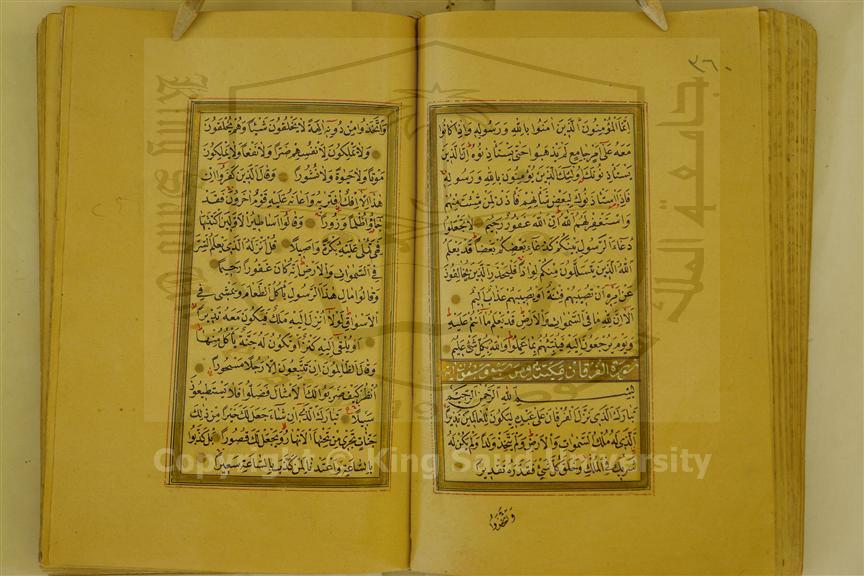 ٣٦٠
إنما المؤمنون الذين آمنوا بالله ورسوله وإذا كانوا
معه على أمر جامع لم يذهبوا حتى يستأذنوه إن الذين
يستأذنونك أولئك الذين يؤمنون بالله ورسوله
فإذا استأذنوك لبعض شأنهم فأذن لمن شئت منهم
واستغفر لهم الله إن الله غفور رحيم لا تجعلوا
دعاء الرسول بينكم كدعاء بعضكم بعضا قد يعلم
الله الذين يتسللون منكم لواذا فليحذر الذين يخالفون
عن أمره أن تصيبهم فتنة أو يصيبهم عذاب أليم
ألا إن لله ما في السموات والأرض قد يعلم ما أنتم عليه
ويوم يرجعون إليه فينبئهم بما عملوا والله بكل شيء عليم
سورة الفرقان مكية وهي سبع وسبعون آية
بسم الله الرحمن الرحيم
تبارك الذي نزل الفرقان على عبده ليكون للعالمين نذيرا
الذي له ملك السموات والأرض ولم يتخذ ولدا ولم يكن له
شريك في الملك وخلق كل شيء فقدره تقديرا
واتخذوا من دونه آلهة لا يخلقون شيئا وهم يخلقون
ولا يملكون لأنفسهم ضرا ولا نفعا ولا يملكون
موتا ولا حيوة ولا نشورا وقال الذين كفروا إن
هذا إلا إفك افتريه وأعانه عليه قوم آخرون فقد
جاؤ ظلما وزورا وقالوا أساطير الأولين اكتتبها
فهي تملى عليه بكرة وأصيلا قل أنزله الذي يعلم السر
في السموات والأرض إنه كان غفورا رحيما
وقالوا مال هذا الرسول يأكل الطعام ويمشي في
الأسواق لولا أنزل إليه ملك فيكون معه نذيرا
أو يلقى إليه كنز أو تكون له جنة يأكل منها
وقال الظالمون إن تتبعون إلا رجلا مسحورا
انظر كيف ضربوا لك الأمثال فضلوا فلا يستطيعون
سبيلا تبارك الذي إن شاء جعل لك خيرا من ذلك
جنات تجري من تحتها الأنهار ويجعل لك قصورا بل كذبوا
بالساعة وأعتدنا لمن كذب بالساعة سعيرا
Copyright © King Saud University